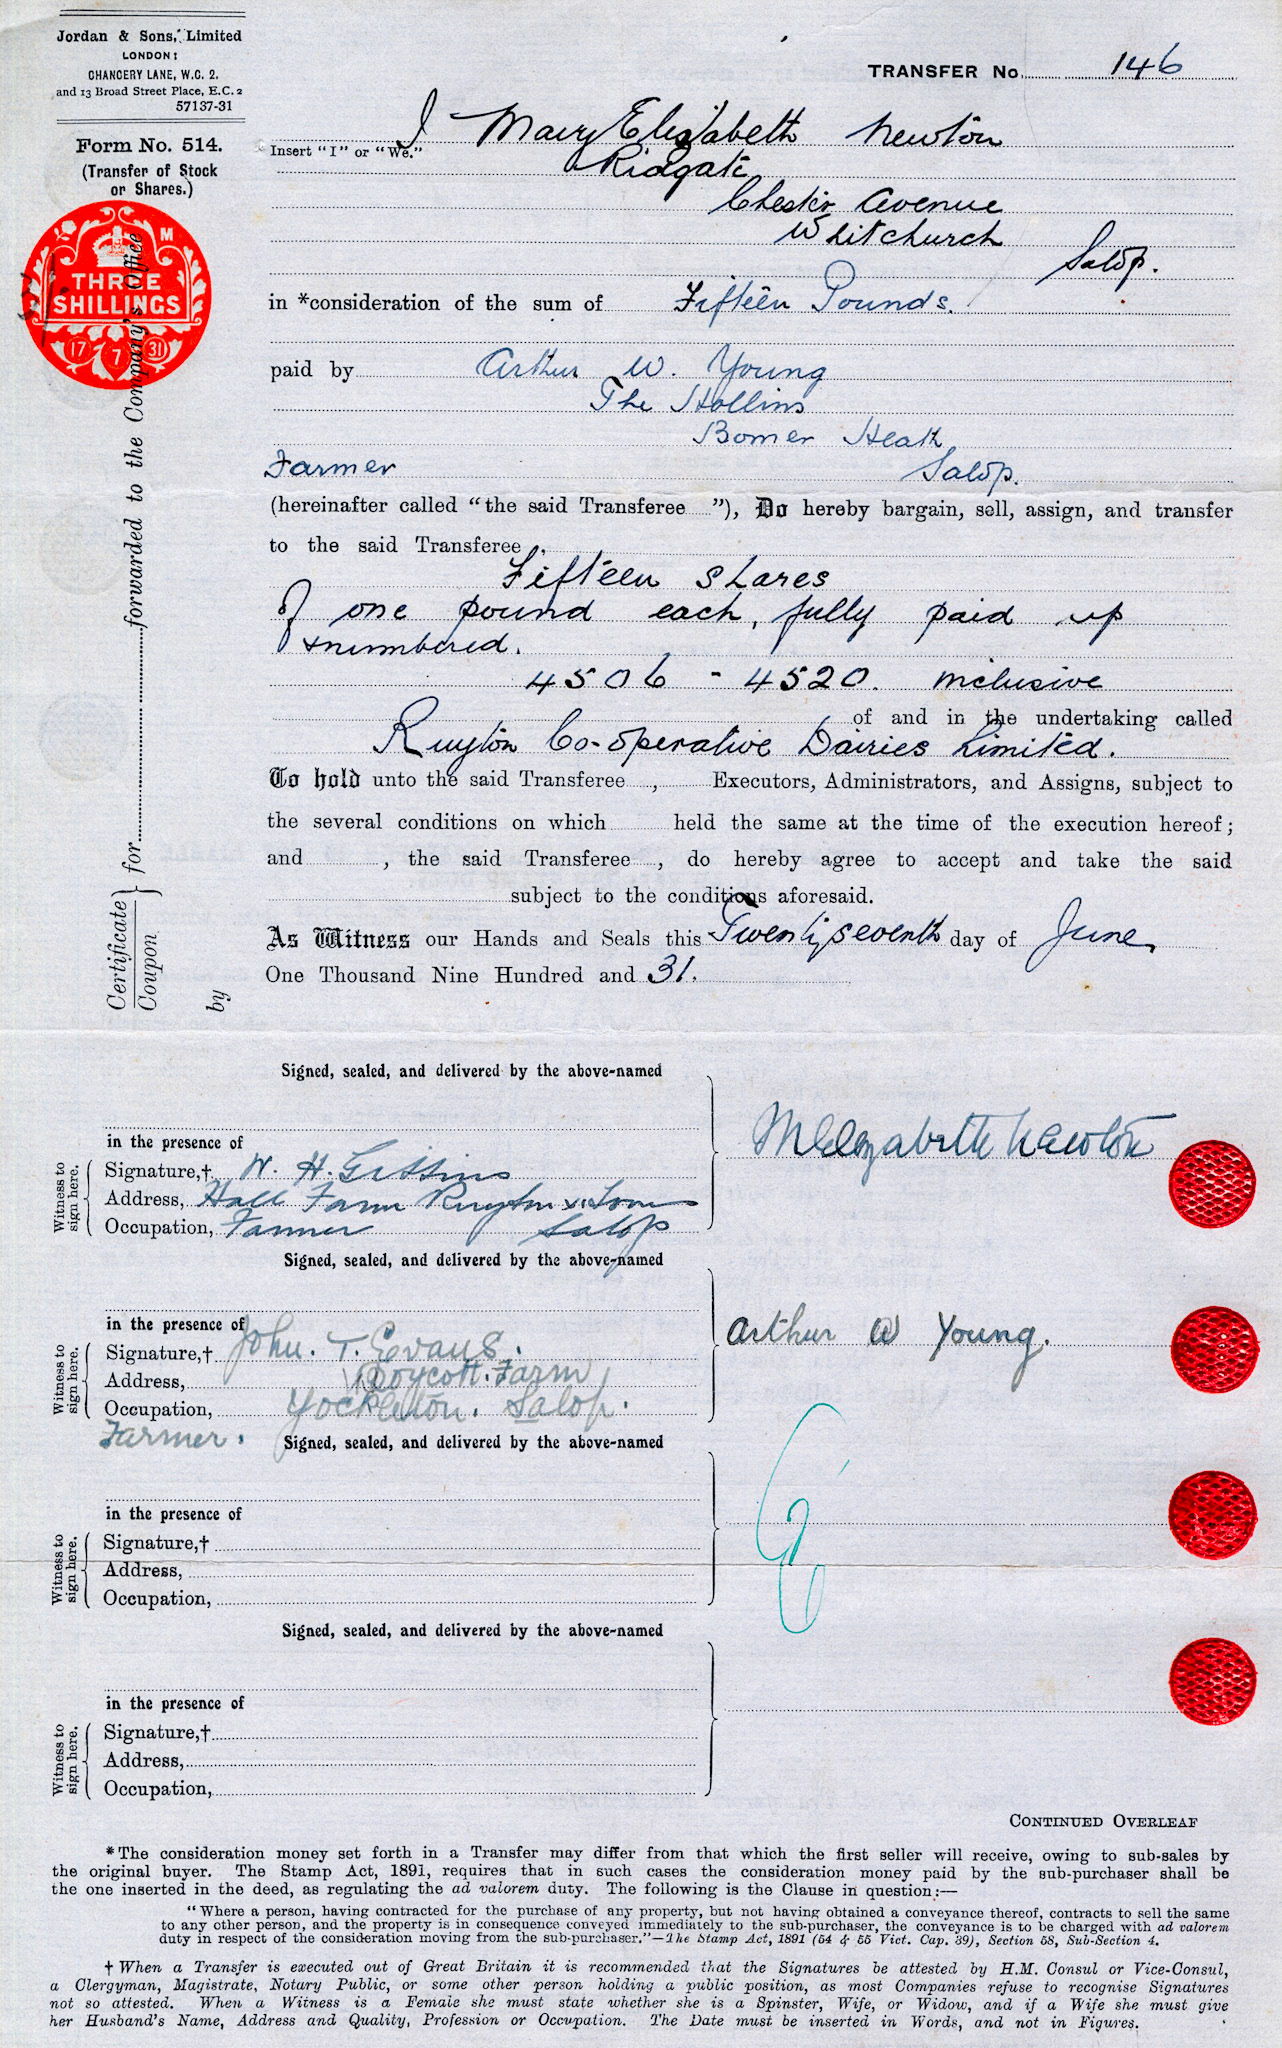 Jordan & Sons, Limited
LONDON:
CHANCERY LANE, W.C. 2.
and 13 Broad Street Place, E.C. 2
57137-31
TRANSFER No. 146
Form No. 514.
(Transfer of Stock
or Shares.)
THREE
SHILLINGS
M
17 7 31
Certificate
Coupon
} for forwarded to the Company's Office
by
I Mary Elizabeth Newton
Insert "I" or "We."
Ridgate
Chester Avenue
Whitchurch
Salop.
in *consideration of the sum of Fifteen Pounds.
paid by Arthur W. Young
The Hollins
Bomer Heath
Farmer Salop.
(hereinafter called "the said Transferee "), Do hereby bargain, sell, assign, and transfer
to the said Transferee .
Fifteen shares
of one pound each, fully paid up
& numbered.
4506 - 4520. inclusive
of and in the undertaking called
Ruyton Co-operative Dairies Limited.
To hold unto the said Transferee , Executors, Administrators, and Assigns, subject to
the several conditions on which held the same at the time of the execution hereof;
and , the said Transferee , do hereby agree to accept and take the said
subject to the conditions aforesaid.
As Witness our Hands and Seals this Twenty seventh day of June,
One Thousand Nine Hundred and 31.
Signed, sealed, and delivered by the above-named
in the presence of
M Elizabeth Newton
Witness to
sign here.
Signature,† W. H. Gittins
Address, Hall Farm Ruyton xi Towns
Occupation, Farmer Salop
Signed, sealed, and delivered by the above-named
in the presence of
Arthur W Young.
Witness to
sign here.
Signature,† John. T. Evans.
Address, Boycott. Farm
Occupation, Yockleton. Salop.
Farmer.
Signed, sealed, and delivered by the above-named
in the presence of
Witness to
sign here.
Signature,†
Address,
Occupation,
Signed, sealed, and delivered by the above-named
in the presence of
Witness to
sign here.
Signature,†
Address,
Occupation,
CONTINUED OVERLEAF
*The consideration money set forth in a Transfer may differ from that which the first seller will receive, owing to sub-sales by
the original buyer. The Stamp Act, 1891, requires that in such cases the consideration money paid by the sub-purchaser shall be
the one inserted in the deed, as regulating the ad valorem duty. The following is the Clause in question:—
"Where a person, having contracted for the purchase of any property, but not having obtained a conveyance thereof, contracts to sell the same
to any other person, and the property is in consequence conveyed immediately to the sub-purchaser, the conveyance is to be charged with ad valorem
duty in respect of the consideration moving from the sub-purchaser."—The Stamp Act, 1891 (54 & 55 Vict. Cap. 39), Section 58, Sub-Section 4.
† When a Transfer is executed out of Great Britain it is recommended that the Signatures be attested by H.M. Consul or Vice-Consul,
a Clergyman, Magistrate, Notary Public, or some other person holding a public position, as most Companies refuse to recognise Signatures
not so attested. When a Witness is a Female she must state whether she is a Spinster, Wife, or Widow, and if a Wife she must give
her Husband's Name, Address and Quality, Profession or Occupation. The Date must be inserted in Words, and not in Figures.